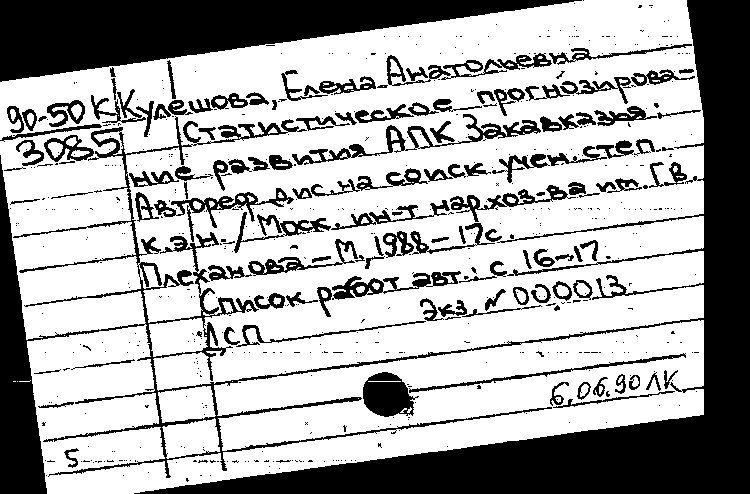 90-50К
3085
Кулешова, Елена Анатольевна
Статистическое прогнозирова-
ние развития АПК Закавказья:
Автореф. дис. на соиск. учен. степ.
к.э.н. / Моск. ин-т нар. хоз-ва им. Г.В.
Плеханова – М., 1988 – 17с.
Список работ авт.: с. 16-17.
ДСП. Экз. № 000013.
6.06.90 ЛК
5